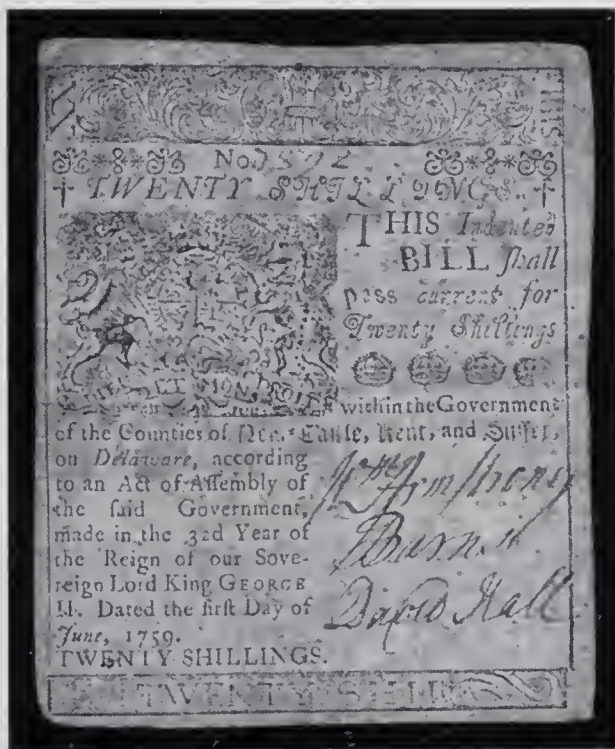 SHIL
No
TWENTY SHILLINGS.
THIS Indented
BILL ſhall
paſs current for
Twenty Shillings
within the Government
of the Counties of Kent, and Suſſex,
on Delaware, according
to an Act of Aſſembly of
the ſaid Government,
made in the 33d Year of
the Reign of our Sove-
reign Lord King GEORGE
II. Dated the firſt Day of
June, 1759.
TWENTY SHILLINGS.
Wm Armſtrong
David Hall
TWENTY SHIL